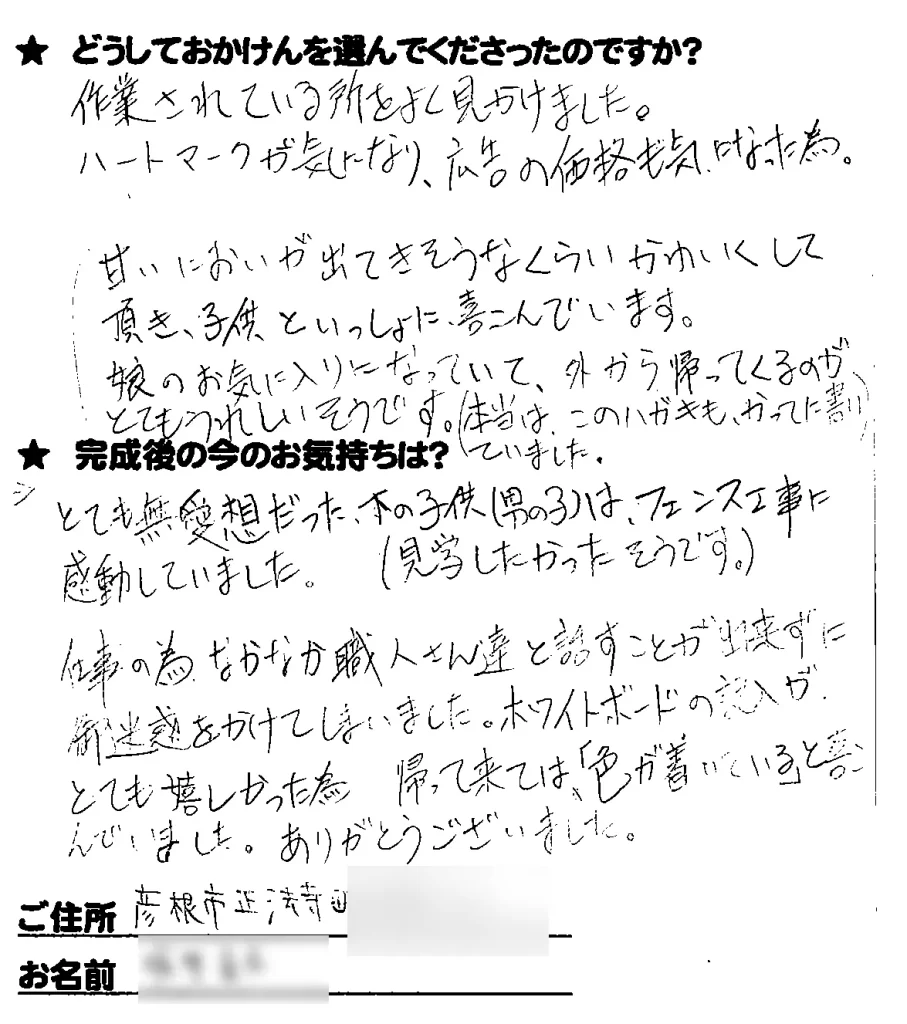 ★ どうしておかけんを選んでくださったのですか?
作業されている所をよく見かけました。
ハートマークが気になり、広告の価格も気になった為。
甘いにおいが出てきそうなくらいかわいくして
頂き、子供といっしょに喜こんでいます。
娘のお気に入りになっていて、外から帰ってくるのが
とてもうれしいそうです。(本当は、このハガキも、かってに書い
ていました。)
★ 完成後の今のお気持ちは?
とても無愛想だった、下の子供(男の子)は、フェンス工事に
感動していました。 (見学したかったそうです。)
仕事の為、なかなか職人さん達と話すことが出来ずに
御迷惑をかけてしまいました。ホワイトボードの記入が、
とても嬉しかった為 帰って来ては、「色が着いている」と喜こ
んでいました。ありがとうございました。
ご住所 彦根市正法寺町
お名前